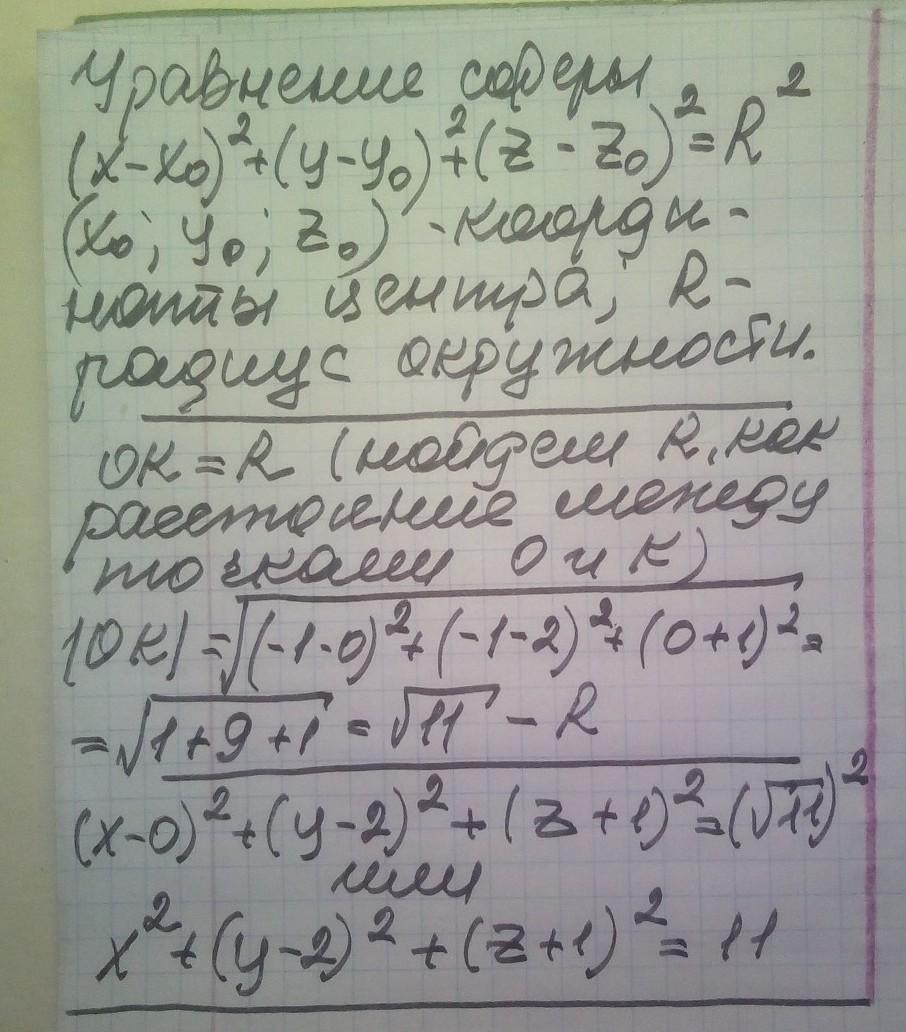 Уравнение сферы
(x-x₀)²+(y-y₀)²+(z-z₀)²=R²
(x₀; y₀; z₀) -коорди-
наты центра; R-
радиус окружности.
OK=R (найдем R, как
расстояние между
точками O и K)
|OK|=√((-1-0)²+(-1-2)²+(0+1)²)=
=√(1+9+1)=√11 - R
(x-0)²+(y-2)²+(z+1)²=(√11)²
или
x²+(y-2)²+(z+1)²=11